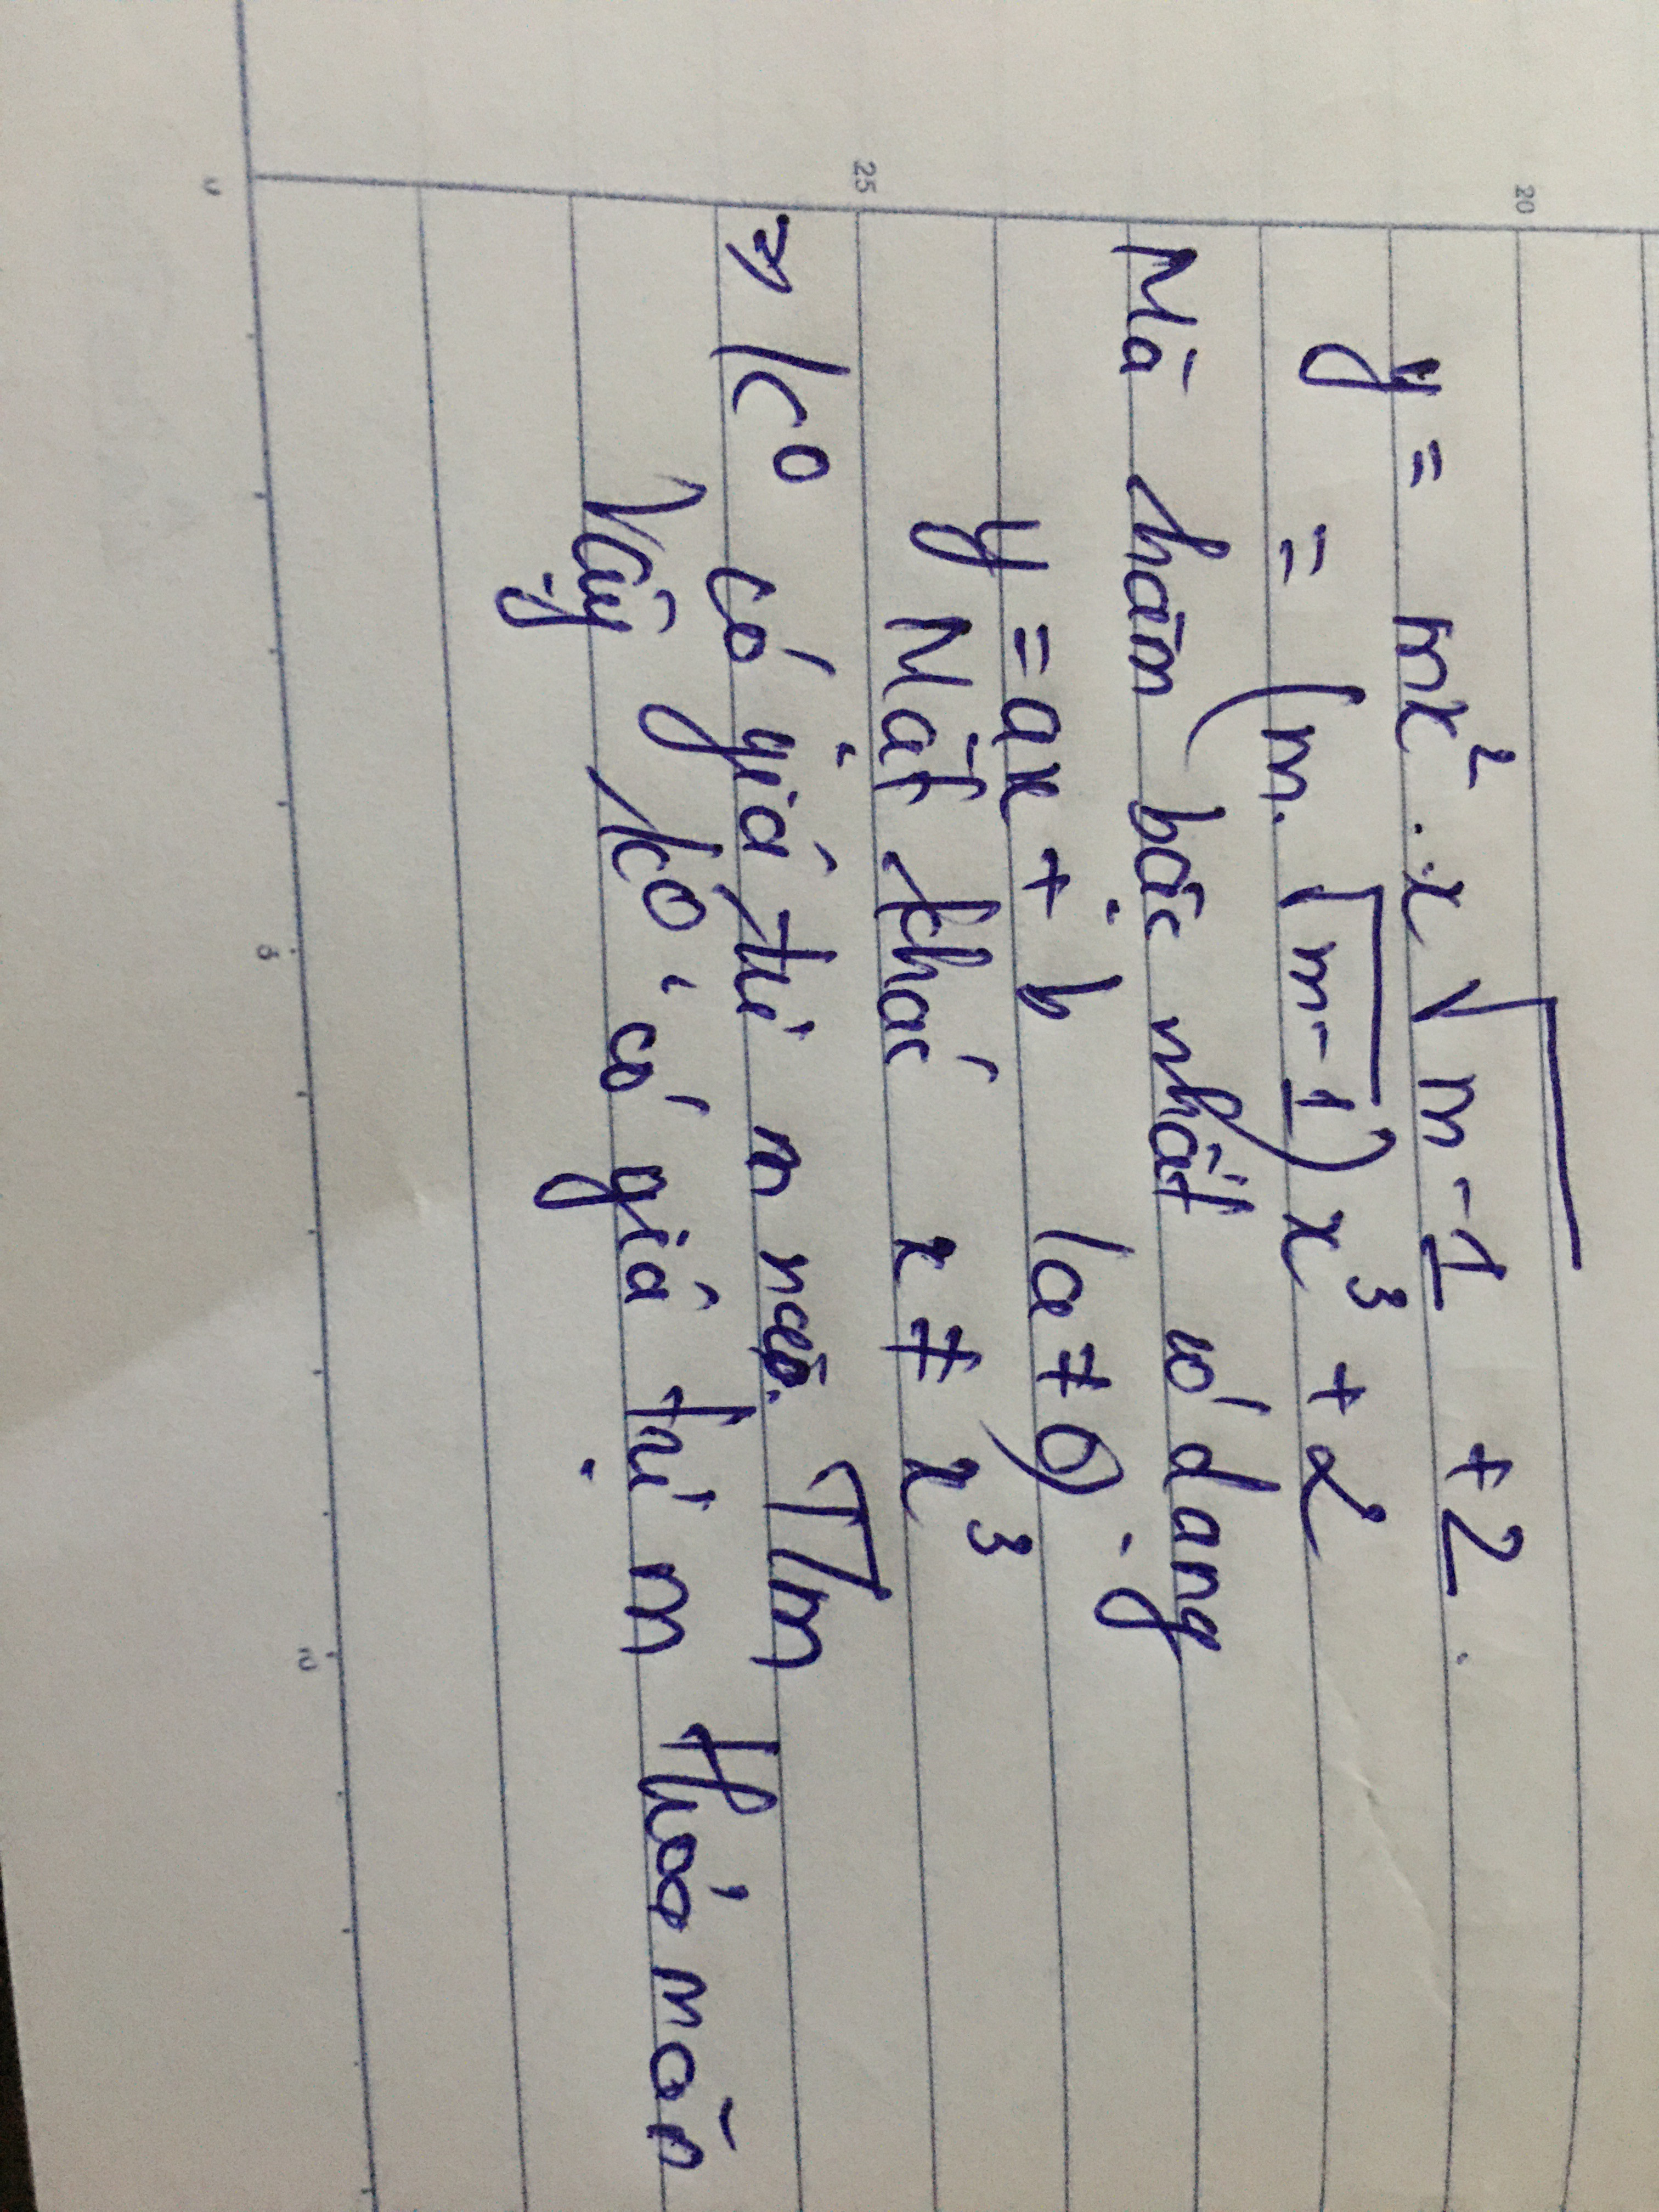 y = mx² . x √m-1 +2.
= (m. √m-1) x³ + 2
Mà hàm bậc nhất có dạng
y = ax + b (a ≠ 0).
Mặt khác x ≠ x³
⇒ ko có giá trị m nào. T/m
Vậy ko có giá trị m thỏa mãn
20
25